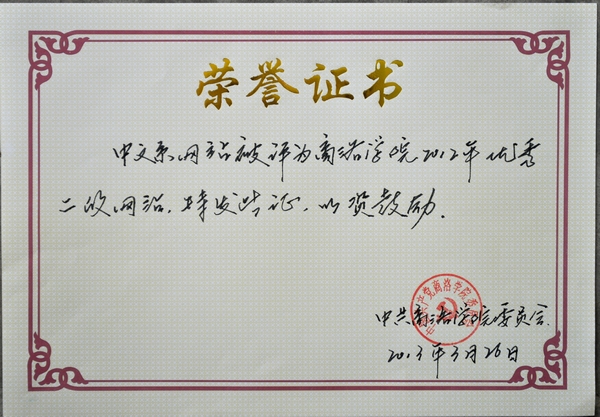 荣誉证书
中文系网站被评为商洛学院2012年优秀
二级网站，特发此证，以资鼓励．
中国共产党商洛学院委员会
中共商洛学院委员会
2013年3月26日